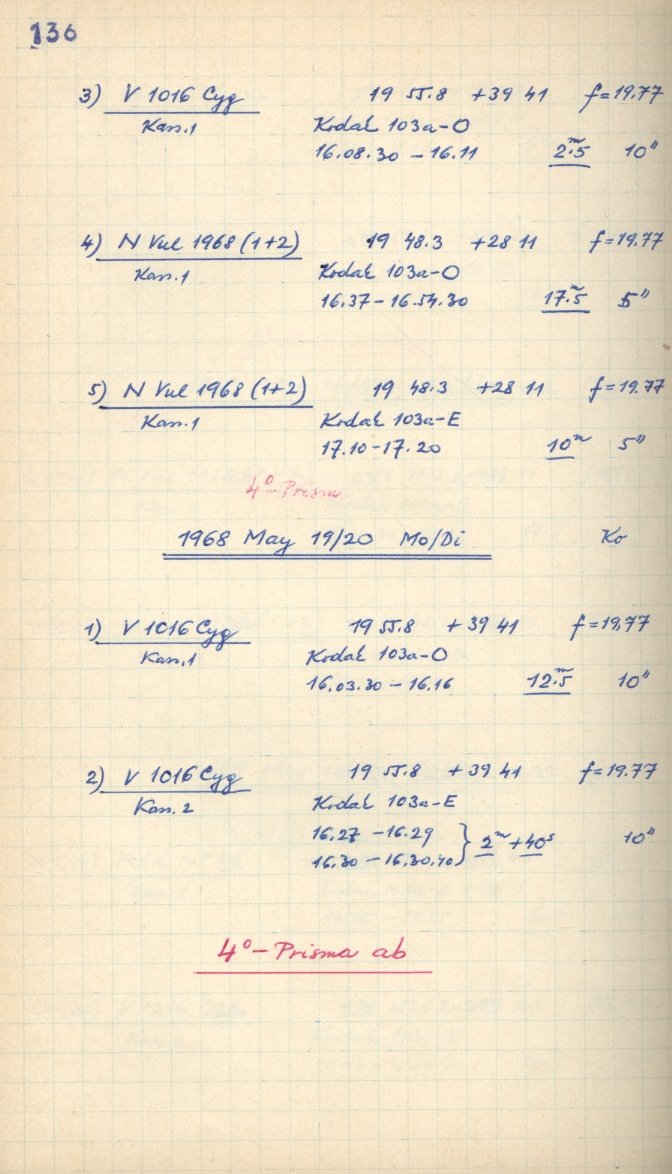 136
3) V 1016 Cyg 19 55.8 +39 41 f=19.77
Kass.1 Kodak 103a-O
16.08.30 - 16.11 2.ᵐ5 10"
4) N Vul 1968 (1+2) 19 48.3 +28 11 f=19.77
Kass.1 Kodak 103a-O
16.37 - 16.54.30 17.ᵐ5 5"
5) N Vul 1968 (1+2) 19 48.3 +28 11 f=19.77
Kass.1 Kodak 103a-E
17.10-17.20 10ᵐ 5"
4°-Prism
1968 May 19/20 Mo/Di Ko
1) V 1016 Cyg 19 55.8 +39 41 f=19.77
Kass.1 Kodak 103a-O
16.03.30 - 16.16 12.ᵐ5 10"
2) V 1016 Cyg 19 55.8 +39 41 f=19.77
Kass.2 Kodak 103a-E
16.27 - 16.29
16.30 - 16.30.40 } 2ᵐ+40ˢ 10"
4°-Prisma ab